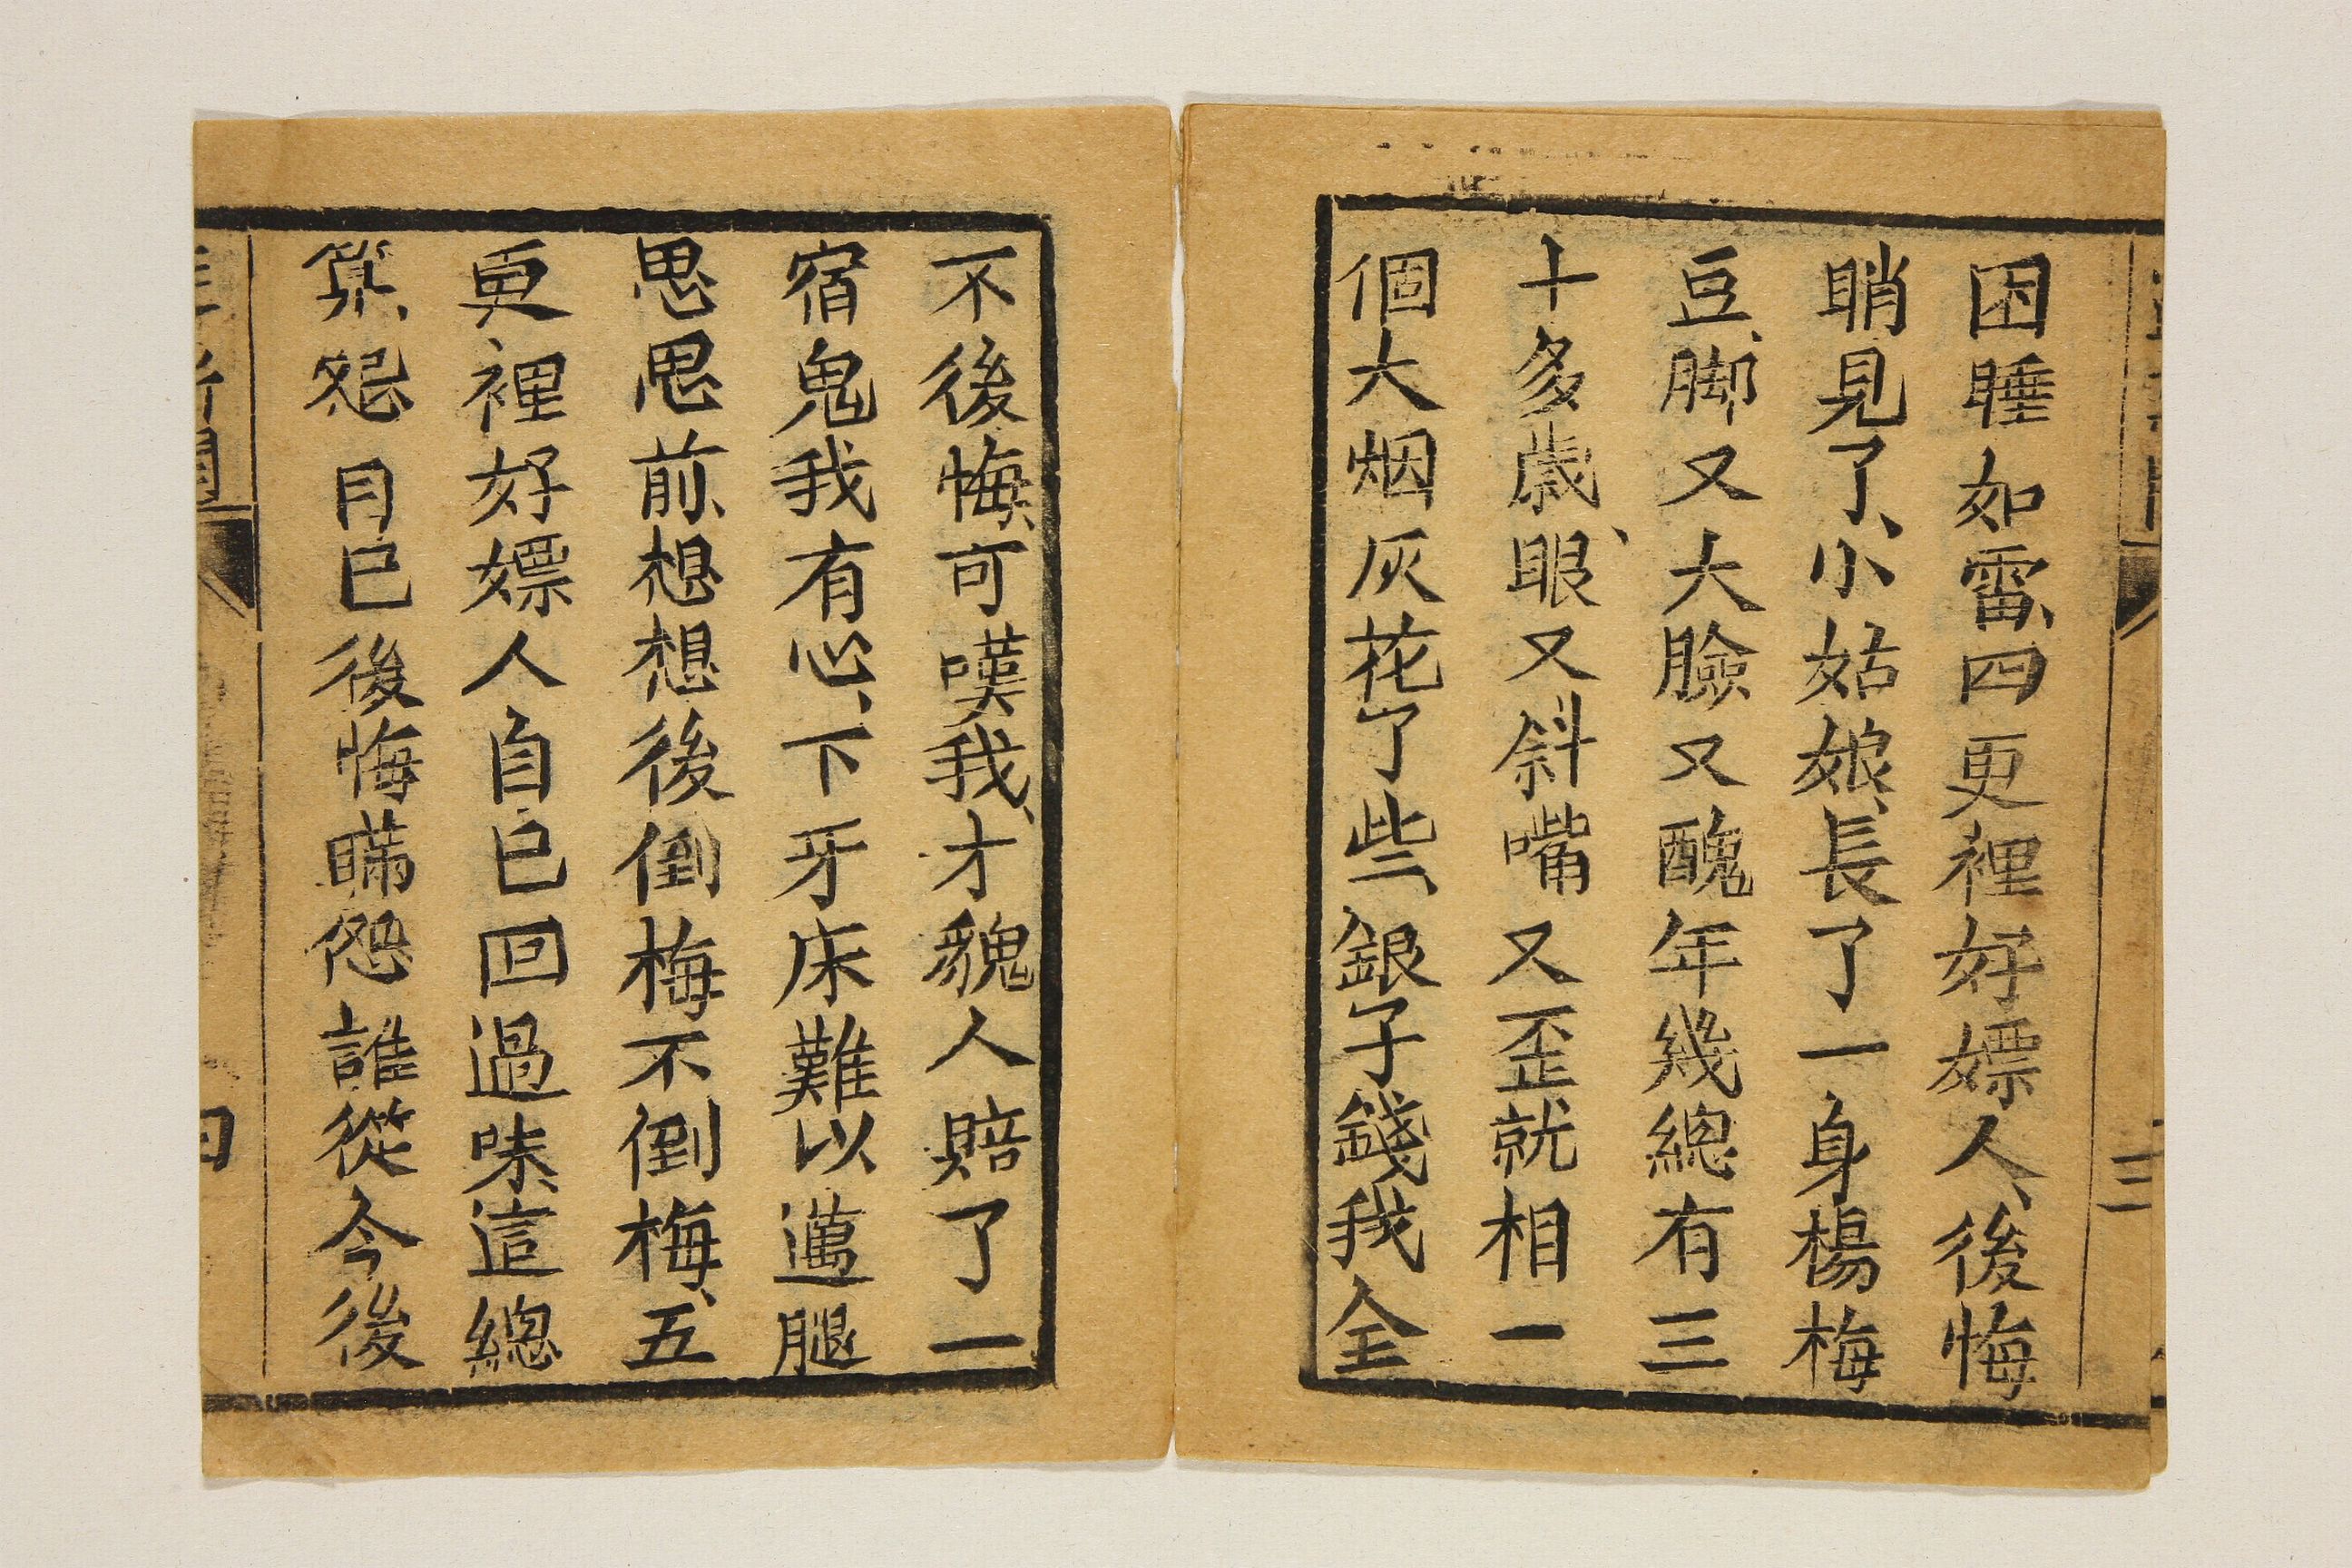 困睡如雷、四更裡好嫖人、後悔
睄見了、小姑娘、長了一身楊梅
豆、脚又大臉又醜年幾總有三
十多歲、眼又斜嘴又歪就相一
個大烟灰花了些、銀子錢我全
不後悔、可嘆我、才貌人賠了一
宿鬼我有心、下牙床難以邁腿
思思前、想想後倒梅不倒梅、五
更、裡好嫖人自已回過味、這總
算、怨自已後悔瞞怨誰從今後
三